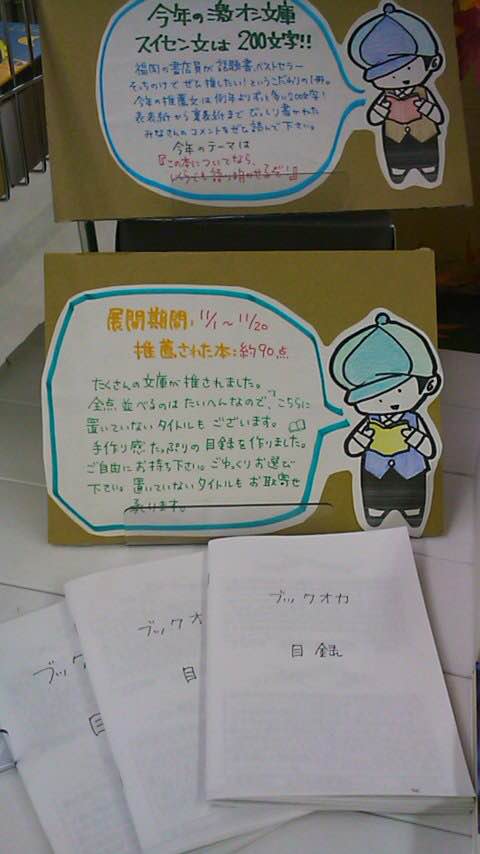 今年の激オシ文庫
スイセン文は200文字!!
福岡の書店員が話題書、ベストセラー
そっちのけでぜひ推したい!というこだわりの1冊。
今年の推薦文は例年よりずっと多い200文字!
表表紙から裏表紙までびっしり書かれた
みなさんのコメントをぜひ読んで下さい。
今年のテーマは
『この本についてなら、
いくらでも語り明かせるぞ!』
展開期間:11/1~11/20
推薦された本:約90点
たくさんの文庫が推されました。
全点並べるのはたいへんなので、こちらに
置いていないタイトルもございます。
手作り感たっぷりの目録を作りました。
ご自由にお持ち下さい。ごゆっくりお選び
下さい。置いていないタイトルもお取寄せ
承ります。
ブックオカ
目録
ブックオカ
目
ブック
目